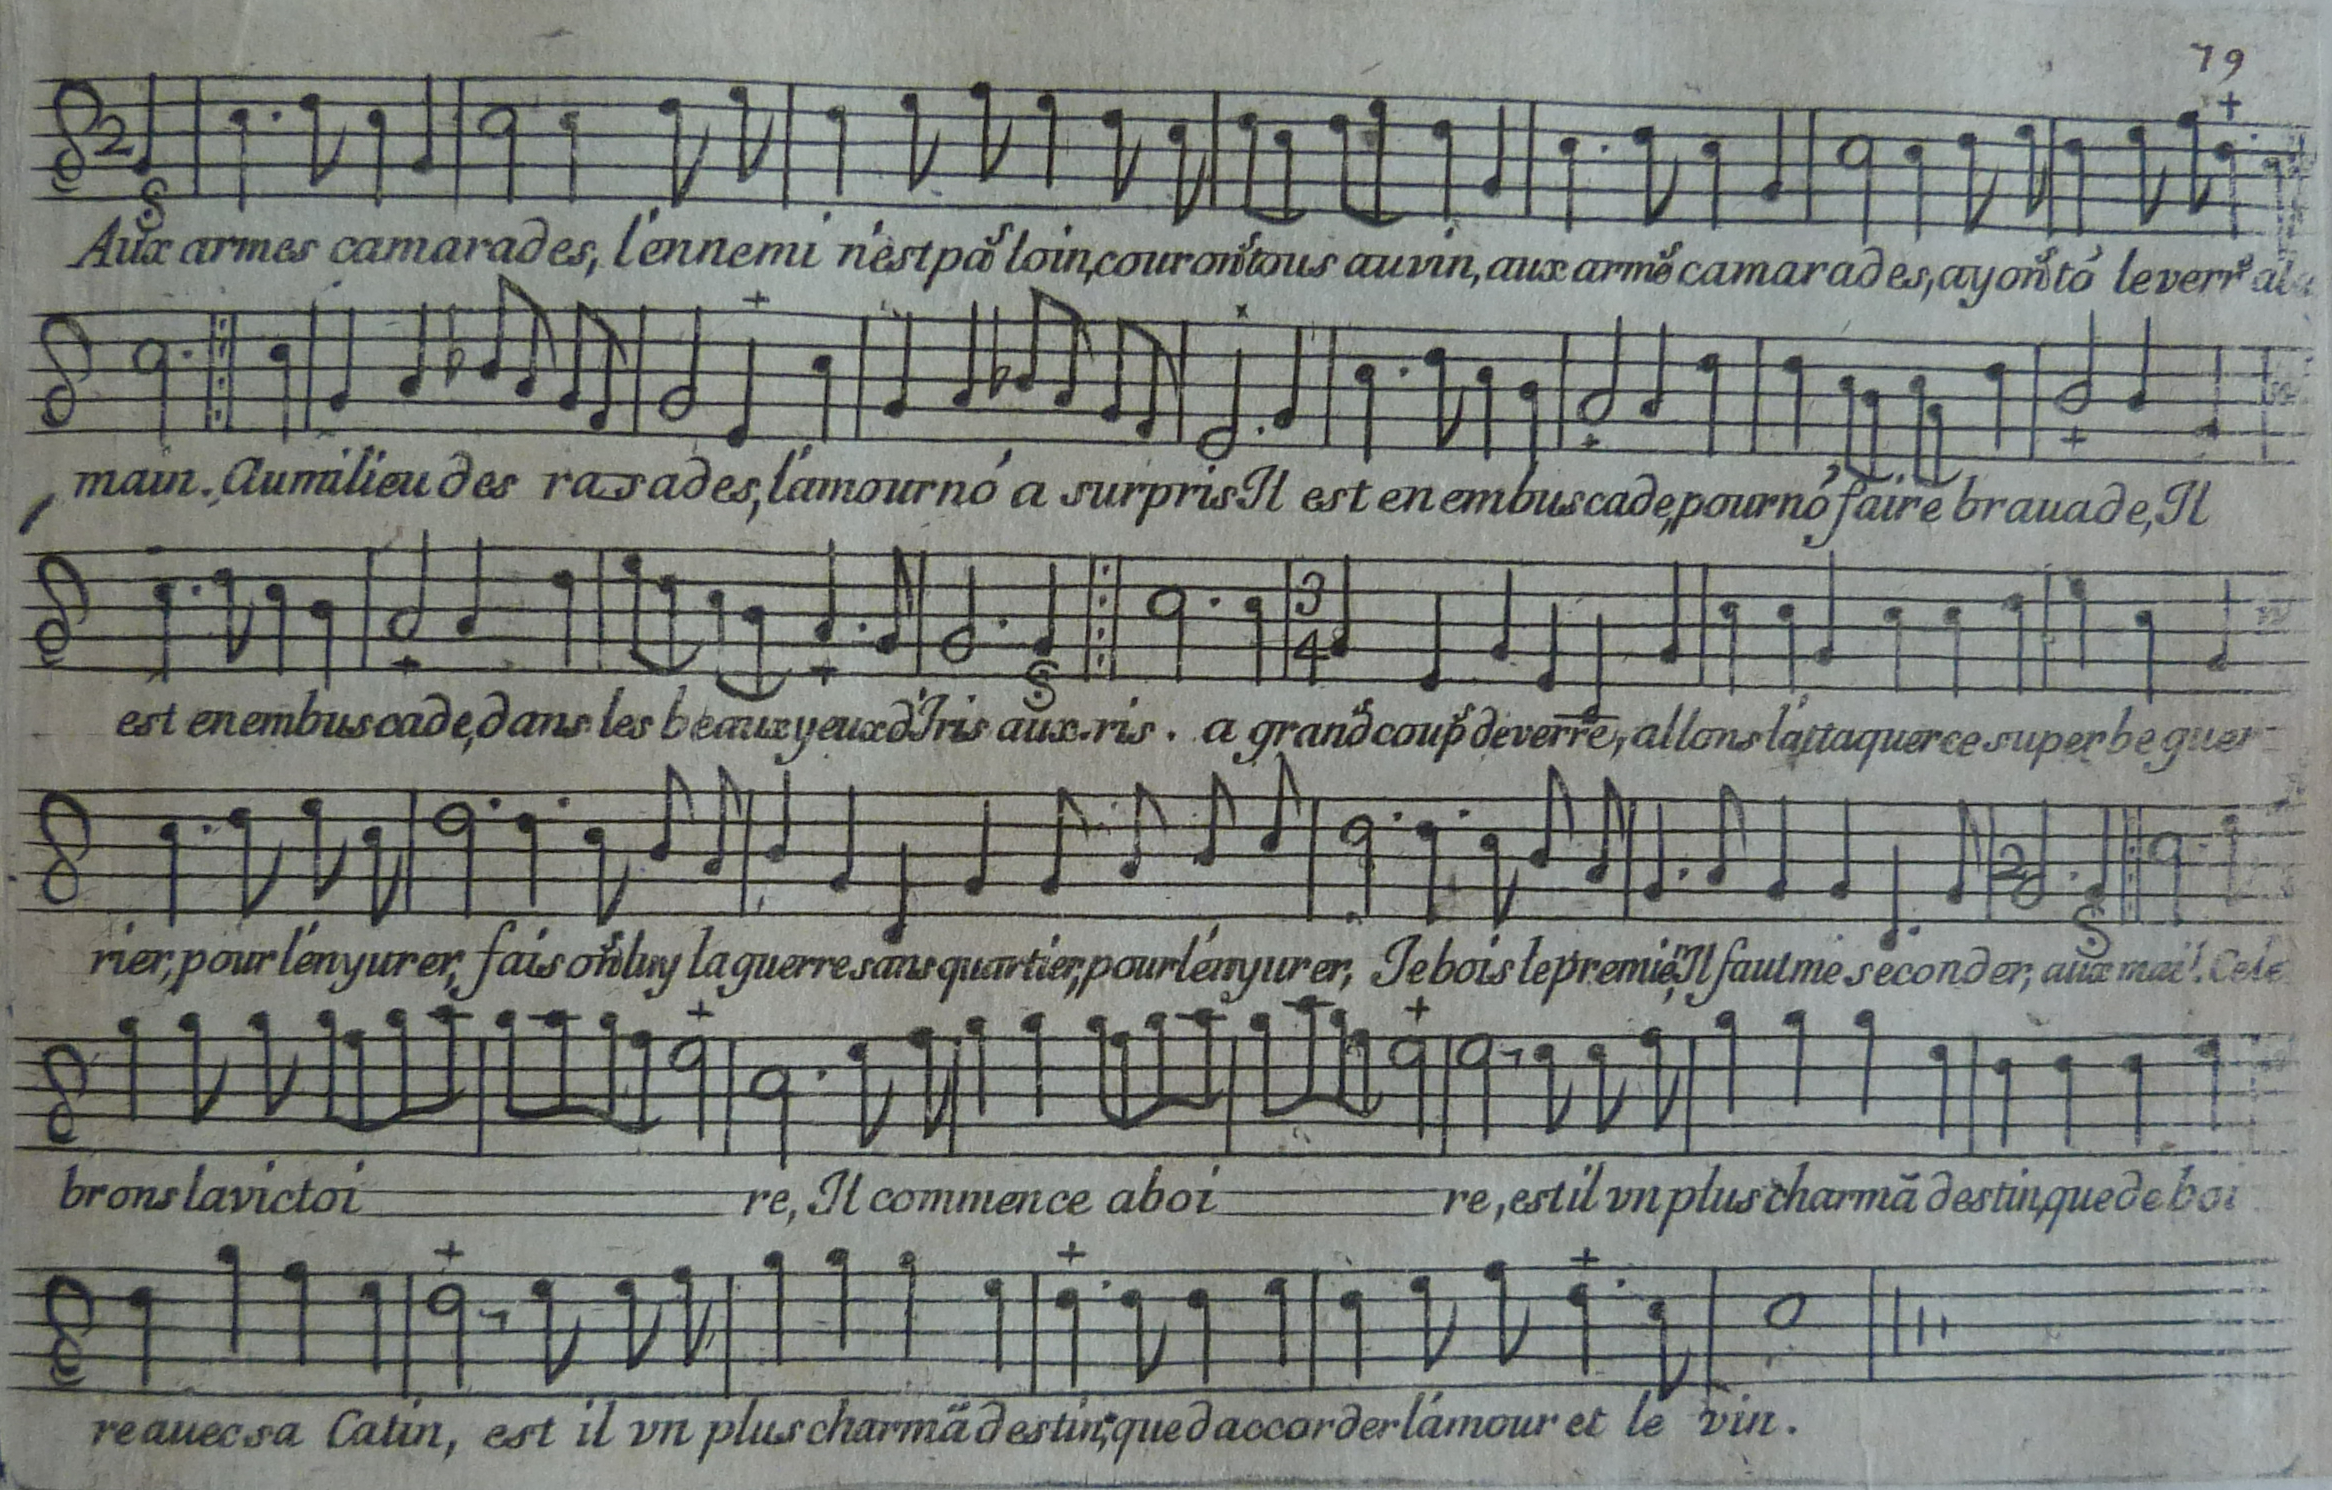 79
2
Aux armes camarades, l'ennemi n'est pas loin, courons tous au vin, aux armes camarades, ayons to' le verre a la
main. Au milieu des rasades, l'amour no' a surpris Il est en embuscade, pour no' faire brauade, Il
3
4
est en embuscade, dans les beaux yeux d'Iris aux. ris. a grands coups de verre, allons l'attaquer ce superbe guer
2
rier, pour l'enyurer, faisons luy la guerre sans quartier, pour l'enyurer, Ie bois le premier, Il faut me seconder, aux mai'. Cele
brons la victoi re, Il commence a boi re, est il vn plus charmã destin, que de boi
re auec sa Catin, est il vn plus charmã destin, que d'accorder l'amour et le vin.